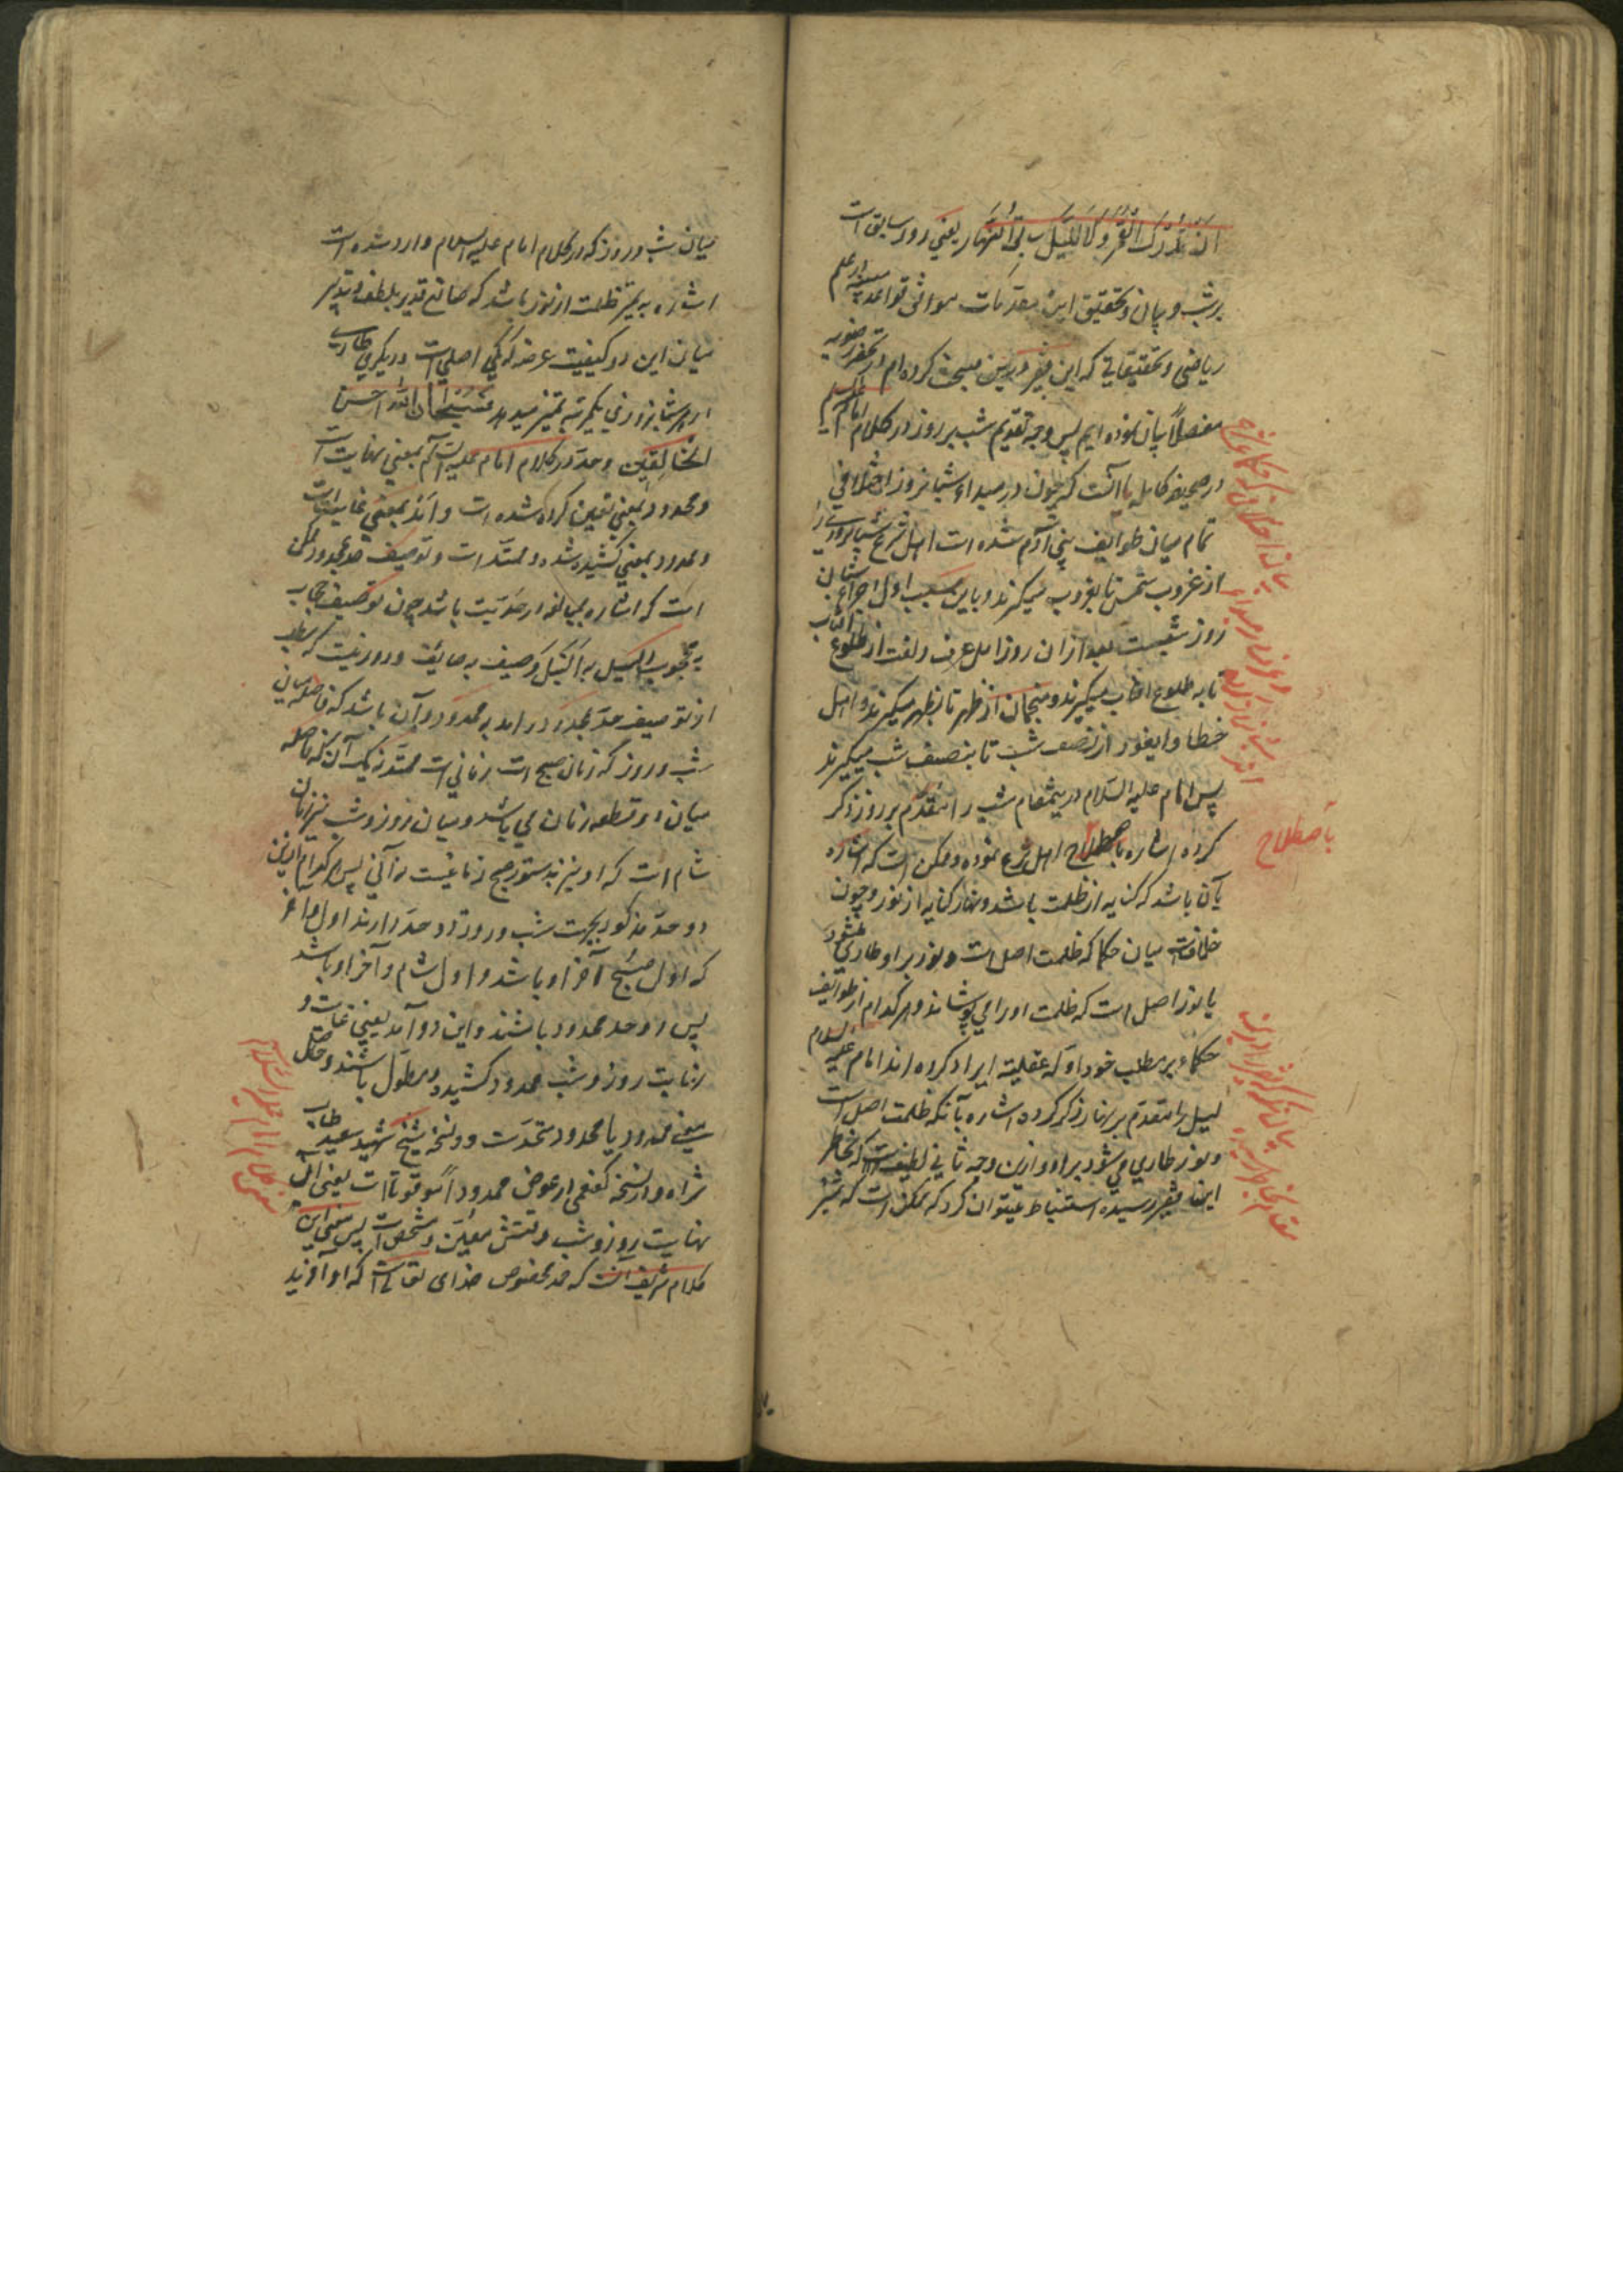 ان تدرک القمر و لا اللیل سابق النهار یعنی روز سابق است
بر شب و بیان و تحقیق این مقدمات موافق قواعد علم
ریاضی و تحقیقاتی که این فقیر درین مبحث کرده ام در تحفه رضویه
مفصلاً بیان نموده ایم پس وجه تقدیم شب بر روز در کلام امام علیه السلام
در صحیفه کامله یا آنست که چون در مبداء شبانروز اختلافی
تمام میان طوایف بنی آدم شده است اهل شرع شبانروز را
از غروب شمس تا بغروب میگیرند و باین سبب اول اجزای شبان
روز شبست بعد از ان روز و اهل عرف و لغت از طلوع
تا به طلوع افتاب میگیرند و منجمان از ظهر تا بظهر میگیرند و اهل
خطا و ایغور از نصف شب تا بنصف شب میگیرند
پس امام علیه السلام درینمقام شب را متقدم بر روز ذکر
کرده اشاره باصطلاح اهل شرع نموده و ممکن است که اشاره
بآن باشد که کنایه از ظلمت باشد و نهار کنایه از نور و چون
خلافست میان حکما که ظلمت اصل است و نور بر او طاری میشود
یا نور اصل است که ظلمت او را می پوشاند و هر کدام از طوایف
حکماء بر مطلب خود ادله عقلیه ایراد کرده اند امام علیه السلام
لیل را متقدم بر نهار ذکر کرده اشاره بآنکه ظلمت اصل است
و نور طاری می شود بر او و ازین وجه ثانی لطیفه است که بخاطر
این فقیر رسیده استنباط میتوان کرد که ممکن است که تمیز
باصطلاح
میان شب و روز که در کلام امام علیه السلام وارد شده است
اشاره به تمیز ظلمت از نور باشد که صانع قدیر بلطف و تدبیر
میان این دو کیفیت عرضه که یکی اصلی است و دیگری طاری
در هر شبانروزی یکمرتبه تمیز میدهد فسبحان الله احسن
الخالقین و حد در کلام امام علیه السلام بمعنی نهایت است
و محدود بمعنی تعین کرده شده است و امد بمعنی غایت است
و ممدود بمعنی کشیده شده و ممتد است و توصیف حد بمحدود ممکن
است که اشاره بمبالغه در حدیت باشد چون توصیف حجاب
به محجوب و لیل به الیل و صیف به صایف و دور نیست که مطلب
از توصیف حد بمحدود و امد به ممدود آن باشد که فاصله میان
شب و روز که زمان صبح است زمانی است ممتد نه یک آن که فاصله
میان دو قطعه زمان می باشد و میان روز و شب نیز زمان
شام است که او نیز بدستور صبح زمانیست نه آنی پس هر کدام ازین
دو حد مذکور بجهت شب و روز دو حد دارند اول و آخر
که اول صبح آخر او باشد و اول شام و آخر او باشد
پس دو حد محدود باشند و این دو آمد یعنی غایت و
نهایت روز و شب ممدود کشیده و مطول باشند و حاصل
معنی ممدود یا محدود متحدست و در نسخه شیخ شهید سعید طاب
ثراه و در نسخه کفعمی در عوض ممدوداً موقوتاً است یعنی آن
نهایت روز و شب وقتش معین و مشخص است پس معنی این
کلام شریف آنست که حمد مخصوص خدای تعالی است که او آفرید